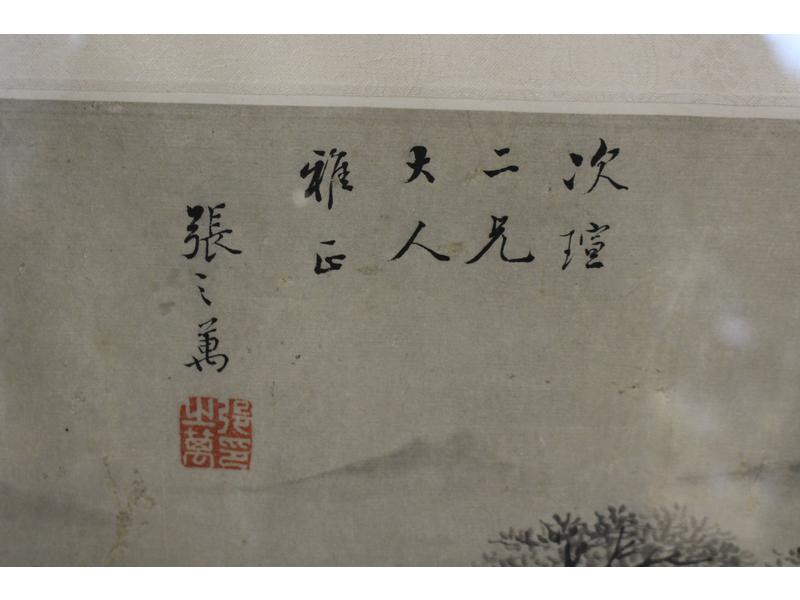 次瑄
二兄
大人
雅正
張之萬
張之萬印